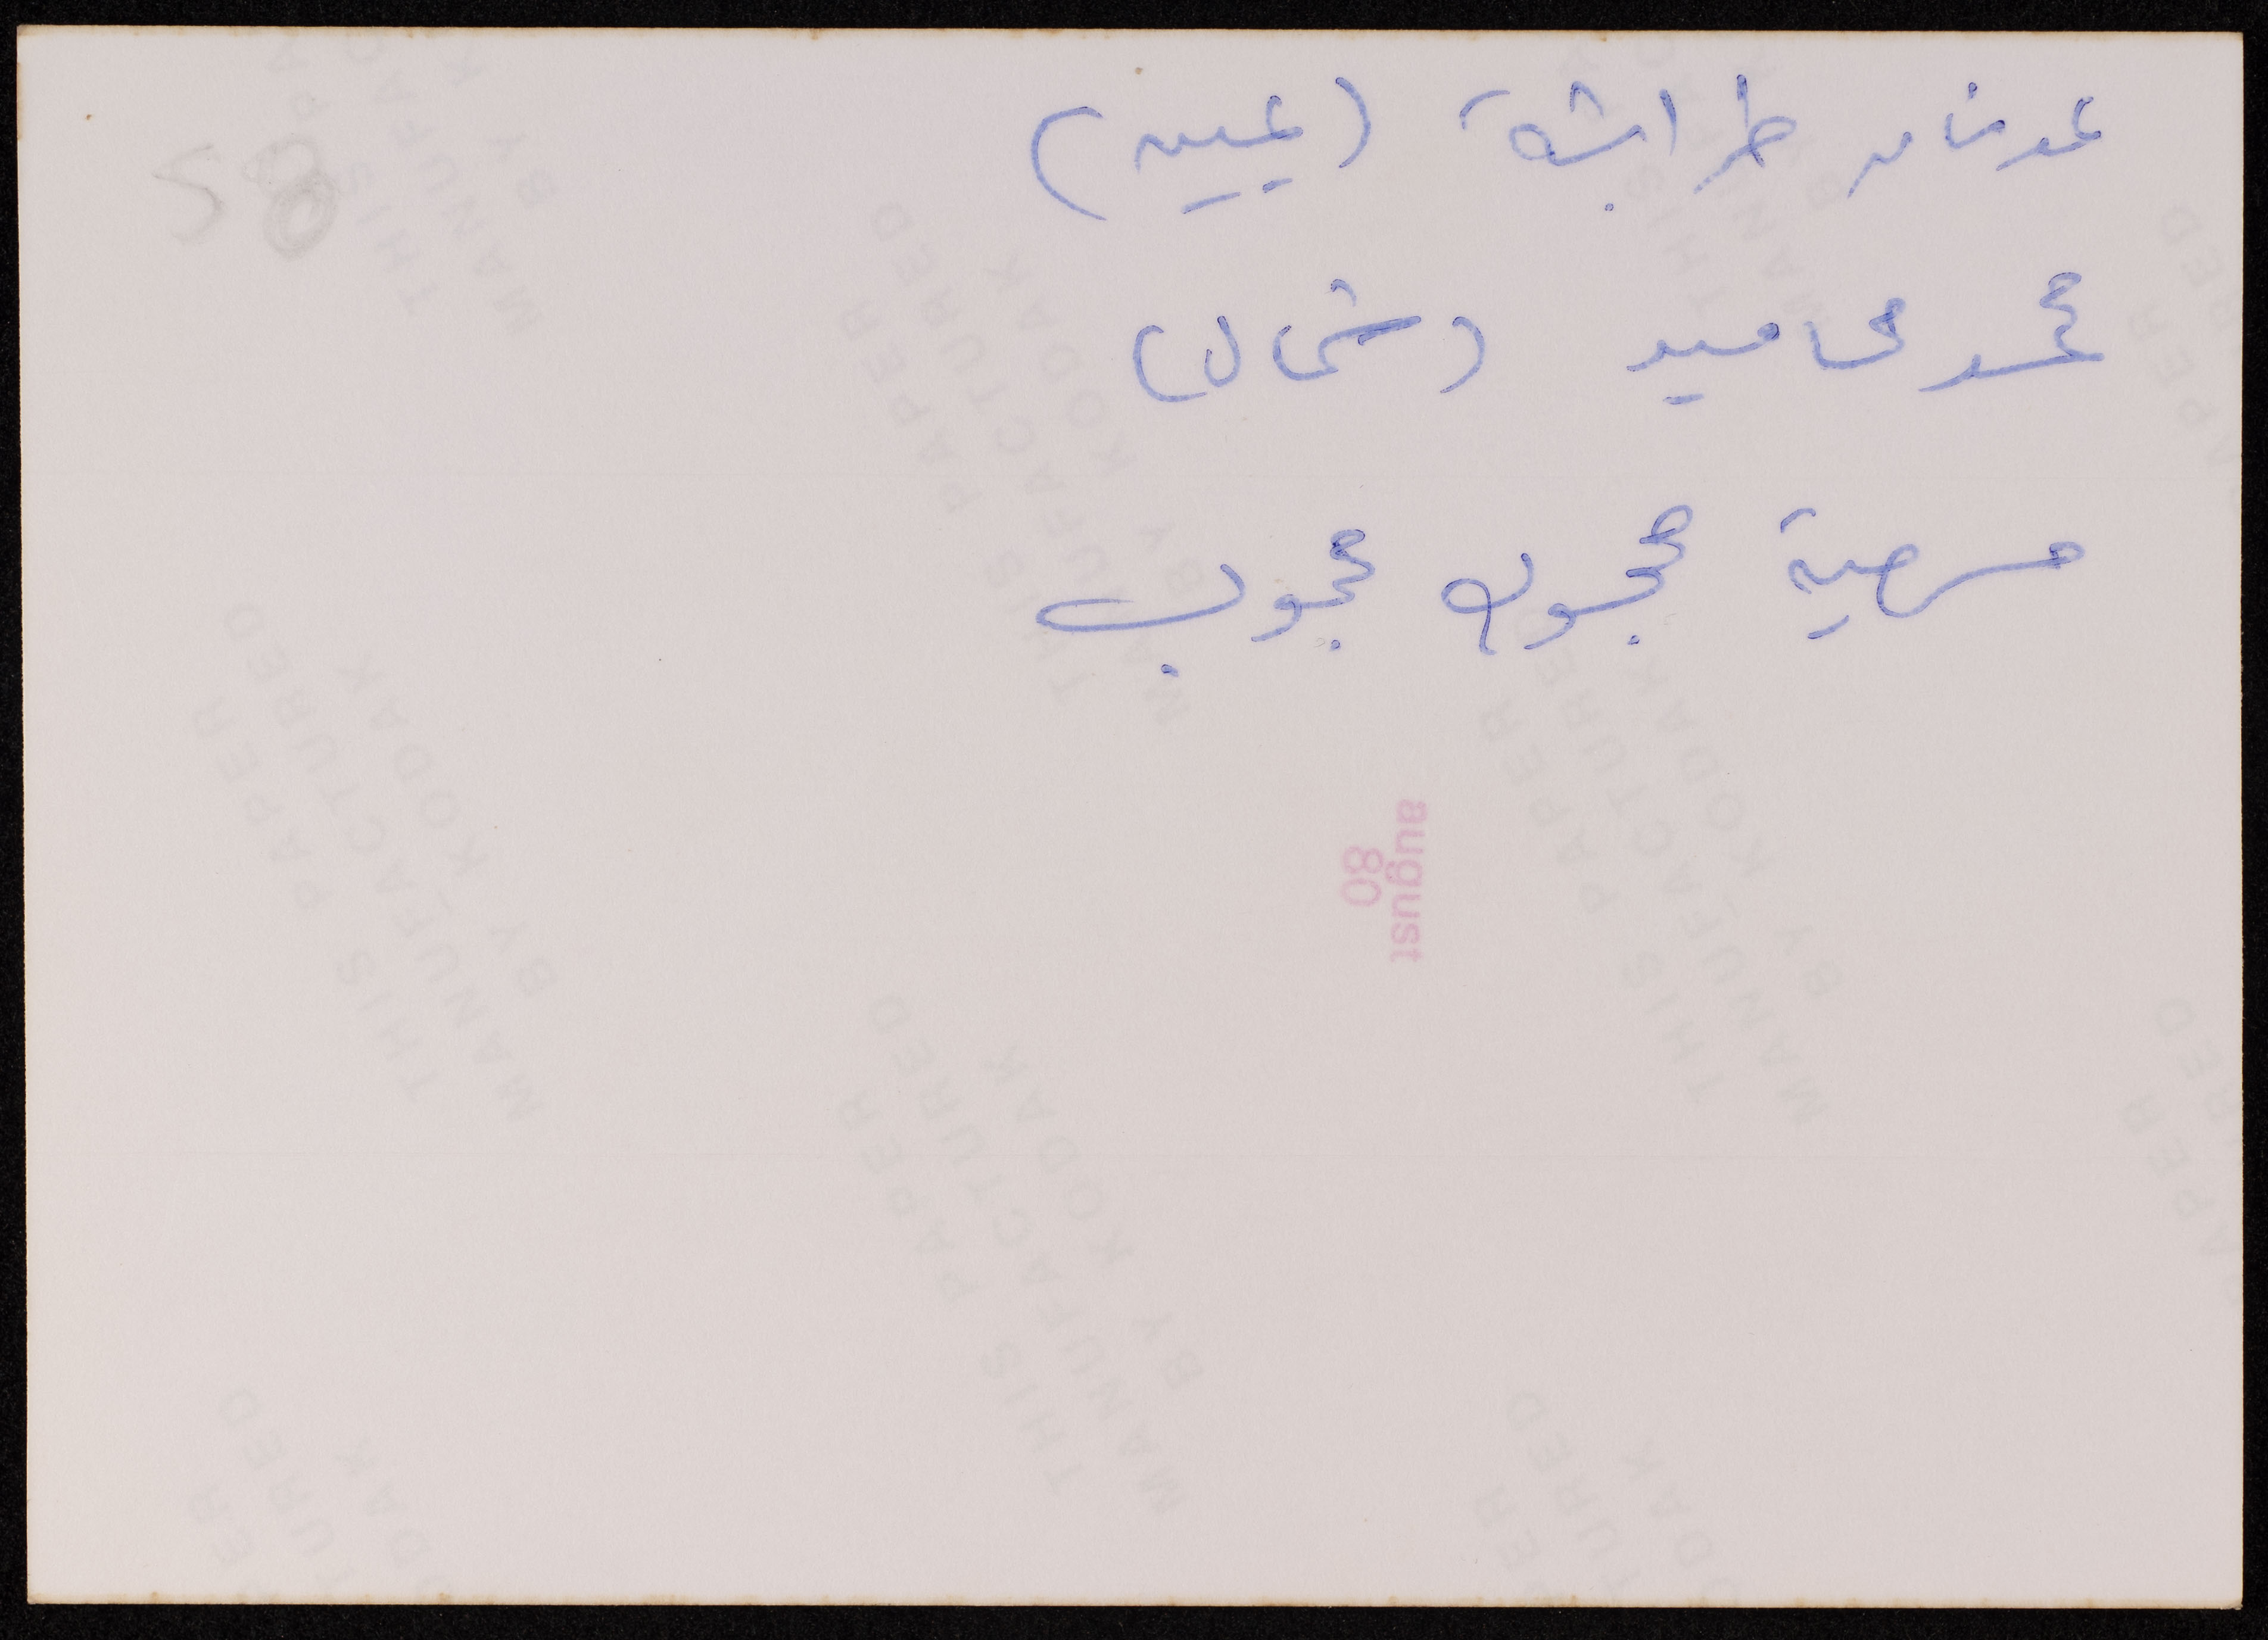 عدنان طرابشة (يمين)
محمد محاميد (شمال)
مسرحية محجوب محجوب
august
80
THIS PAPER
MANUFACTURED
BY KODAK
THIS PAPER
MANUFACTURED
BY KODAK
THIS PAPER
MANUFACTURED
BY KODAK
THIS PAPER
MANUFACTURED
BY KODAK